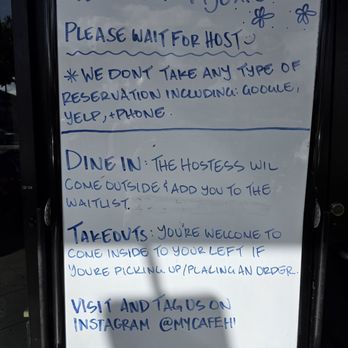 PLEASE WAIT FOR HOST
*WE DONT TAKE ANY TYPE OF
RESERVATION INCLUDING: GOOGLE,
YELP, + PHONE.
DINE IN: THE HOSTESS WIL
COME OUTSIDE & ADD YOU TO THE
WAITLIST.
TAKEOUTS: YOU'RE WELCOME TO
COME INSIDE TO YOUR LEFT IF
YOURE PICKING UP/PLACING AN ORDER.
VISIT AND TAG US ON
INSTAGRAM @MYCAFE.HI